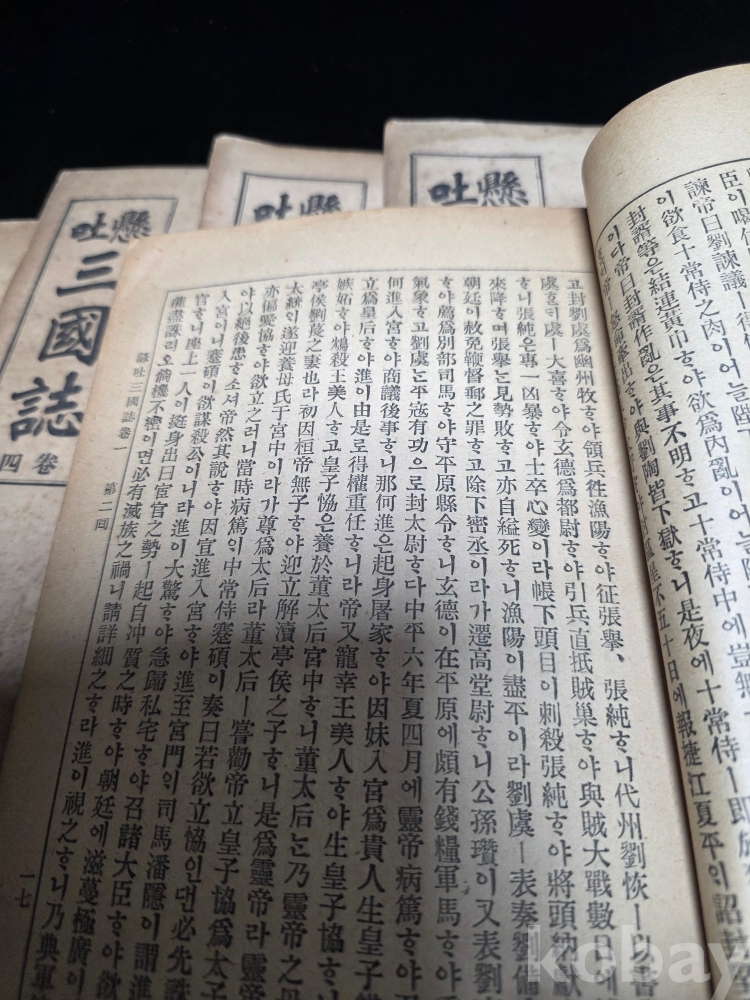 臣이
諫帝曰劉諫議ㅣ
이欲食十常侍之肉이어늘陛
封諝等은結連黃巾ᄒᆞ야欲爲內亂이어늘
이다帝曰封諝作亂은其事不明ᄒᆞ고十常侍中에豈
ᄒᆞ야與劉陶皆下獄ᄒᆞ니是夜에十常侍ㅣ即
不五十日에報捷江夏平이
고封劉虞爲幽州牧ᄒᆞ야領兵往漁陽ᄒᆞ야征張擧、張純ᄒᆞ니代州劉恢ㅣ以書
虞ᄒᆞᆫᄃᆡ虞ㅣ大喜ᄒᆞ야令玄德爲都尉ᄒᆞ야引兵直抵賊巢ᄒᆞ야與賊大戰數日에
ᄒᆞ니張純은專一凶暴ᄒᆞ야士卒心變이라帳下頭目이刺殺張純ᄒᆞ야將頭納獻
來降ᄒᆞ며張擧ᄂᆞᆫ見勢敗ᄒᆞ고亦自縊死ᄒᆞ니漁陽이盡平이라劉虞ㅣ表奏劉備
朝廷이赦免鞭督郵之罪ᄒᆞ고除下密丞이라가遷高堂尉ᄒᆞ니公孫瓚이又表劉
ᄒᆞ야薦爲別部司馬ᄒᆞ야守平原縣令ᄒᆞ니玄德이在平原에頗有錢糧軍馬ᄒᆞ야
氣象ᄒᆞ고劉虞ᄂᆞᆫ平寇有功으로封太尉ᄒᆞ다中平六年夏四月에靈帝病篤ᄒᆞ야
何進入宮ᄒᆞ야商議後事ᄒᆞ니那何進은起身屠家ᄒᆞ야因妹入宮爲貴人生皇子
立爲皇后ᄒᆞ야進이由是로得權重任ᄒᆞ니라帝又寵幸王美人ᄒᆞ야生皇子協ᄒᆞ니
嫉妬ᄒᆞ야鴆殺王美人ᄒᆞ고皇子協은養於董太后宮中ᄒᆞ니董太后ᄂᆞᆫ乃靈帝之母
亭侯劉萇之妻也라初因桓帝無子ᄒᆞ야迎立解瀆亭侯之子ᄒᆞ니是爲靈帝라靈帝
太統이遂迎養母氏于宮中이라가尊爲太后라董太后ㅣ嘗勸帝立皇子協爲太子
亦偏愛協ᄒᆞ야欲立之러니當時病篤이中常侍蹇碩이奏曰若欲立協인댄必先誅
야以絕後患ᄒᆞ소셔帝然其說ᄒᆞ야因宣進入宮ᄒᆞ야進至宮門의司馬潘隱이謂進
入宮이니蹇碩이欲謀殺公이니라進이大驚ᄒᆞ야急歸私宅ᄒᆞ야召諸大臣ᄒᆞ야欲
官ᄒᆞ니座上一人이挺身出曰宦官之勢ㅣ起自冲質之時ᄒᆞ야朝廷에滋蔓極廣이
能盡誅리오倘機不密이면必有滅族之禍니請詳細之ᄒᆞ라進이視之ᄒᆞ니乃典軍
懸吐三國誌卷一 第二回 一七
懸吐三國誌
卷四
懸吐
懸吐
kobay